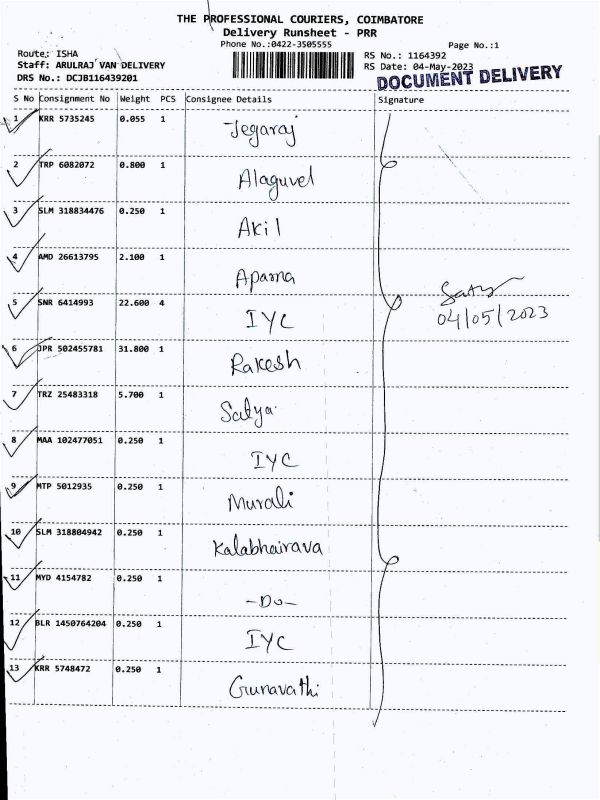 THE PROFESSIONAL COURIERS, COIMBATORE
Delivery Runsheet - PRR
Phone No.:0422-3505555
Page No.:1
Route: ISHA
RS No.: 1164392
Staff: ARULRAJ VAN DELIVERY
RS Date: 04-May-2023
DRS No.: DCJB116439201
DOCUMENT DELIVERY
S No Consignment No Weight PCS Consignee Details Signature
1 KRR 5735245 0.055 1 Jegaraj
2 TRP 6082072 0.800 1 Alaguvel
3 SLM 318834476 0.250 1 Akil
4 AMD 26613795 2.100 1 Aparna
5 SNR 6414993 22.600 4 IYC
Satya
04/05/2023
6 JPR 502455781 31.800 1 Rakesh
7 TRZ 25483318 5.700 1 Satya
8 MAA 102477051 0.250 1 IYC
9 MTP 5012935 0.250 1 Murali
10 SLM 318804942 0.250 1 Kalabhairava
11 MYD 4154782 0.250 1 -Do-
12 BLR 1450764204 0.250 1 IYC
13 KRR 5748472 0.250 1 Gunavathi